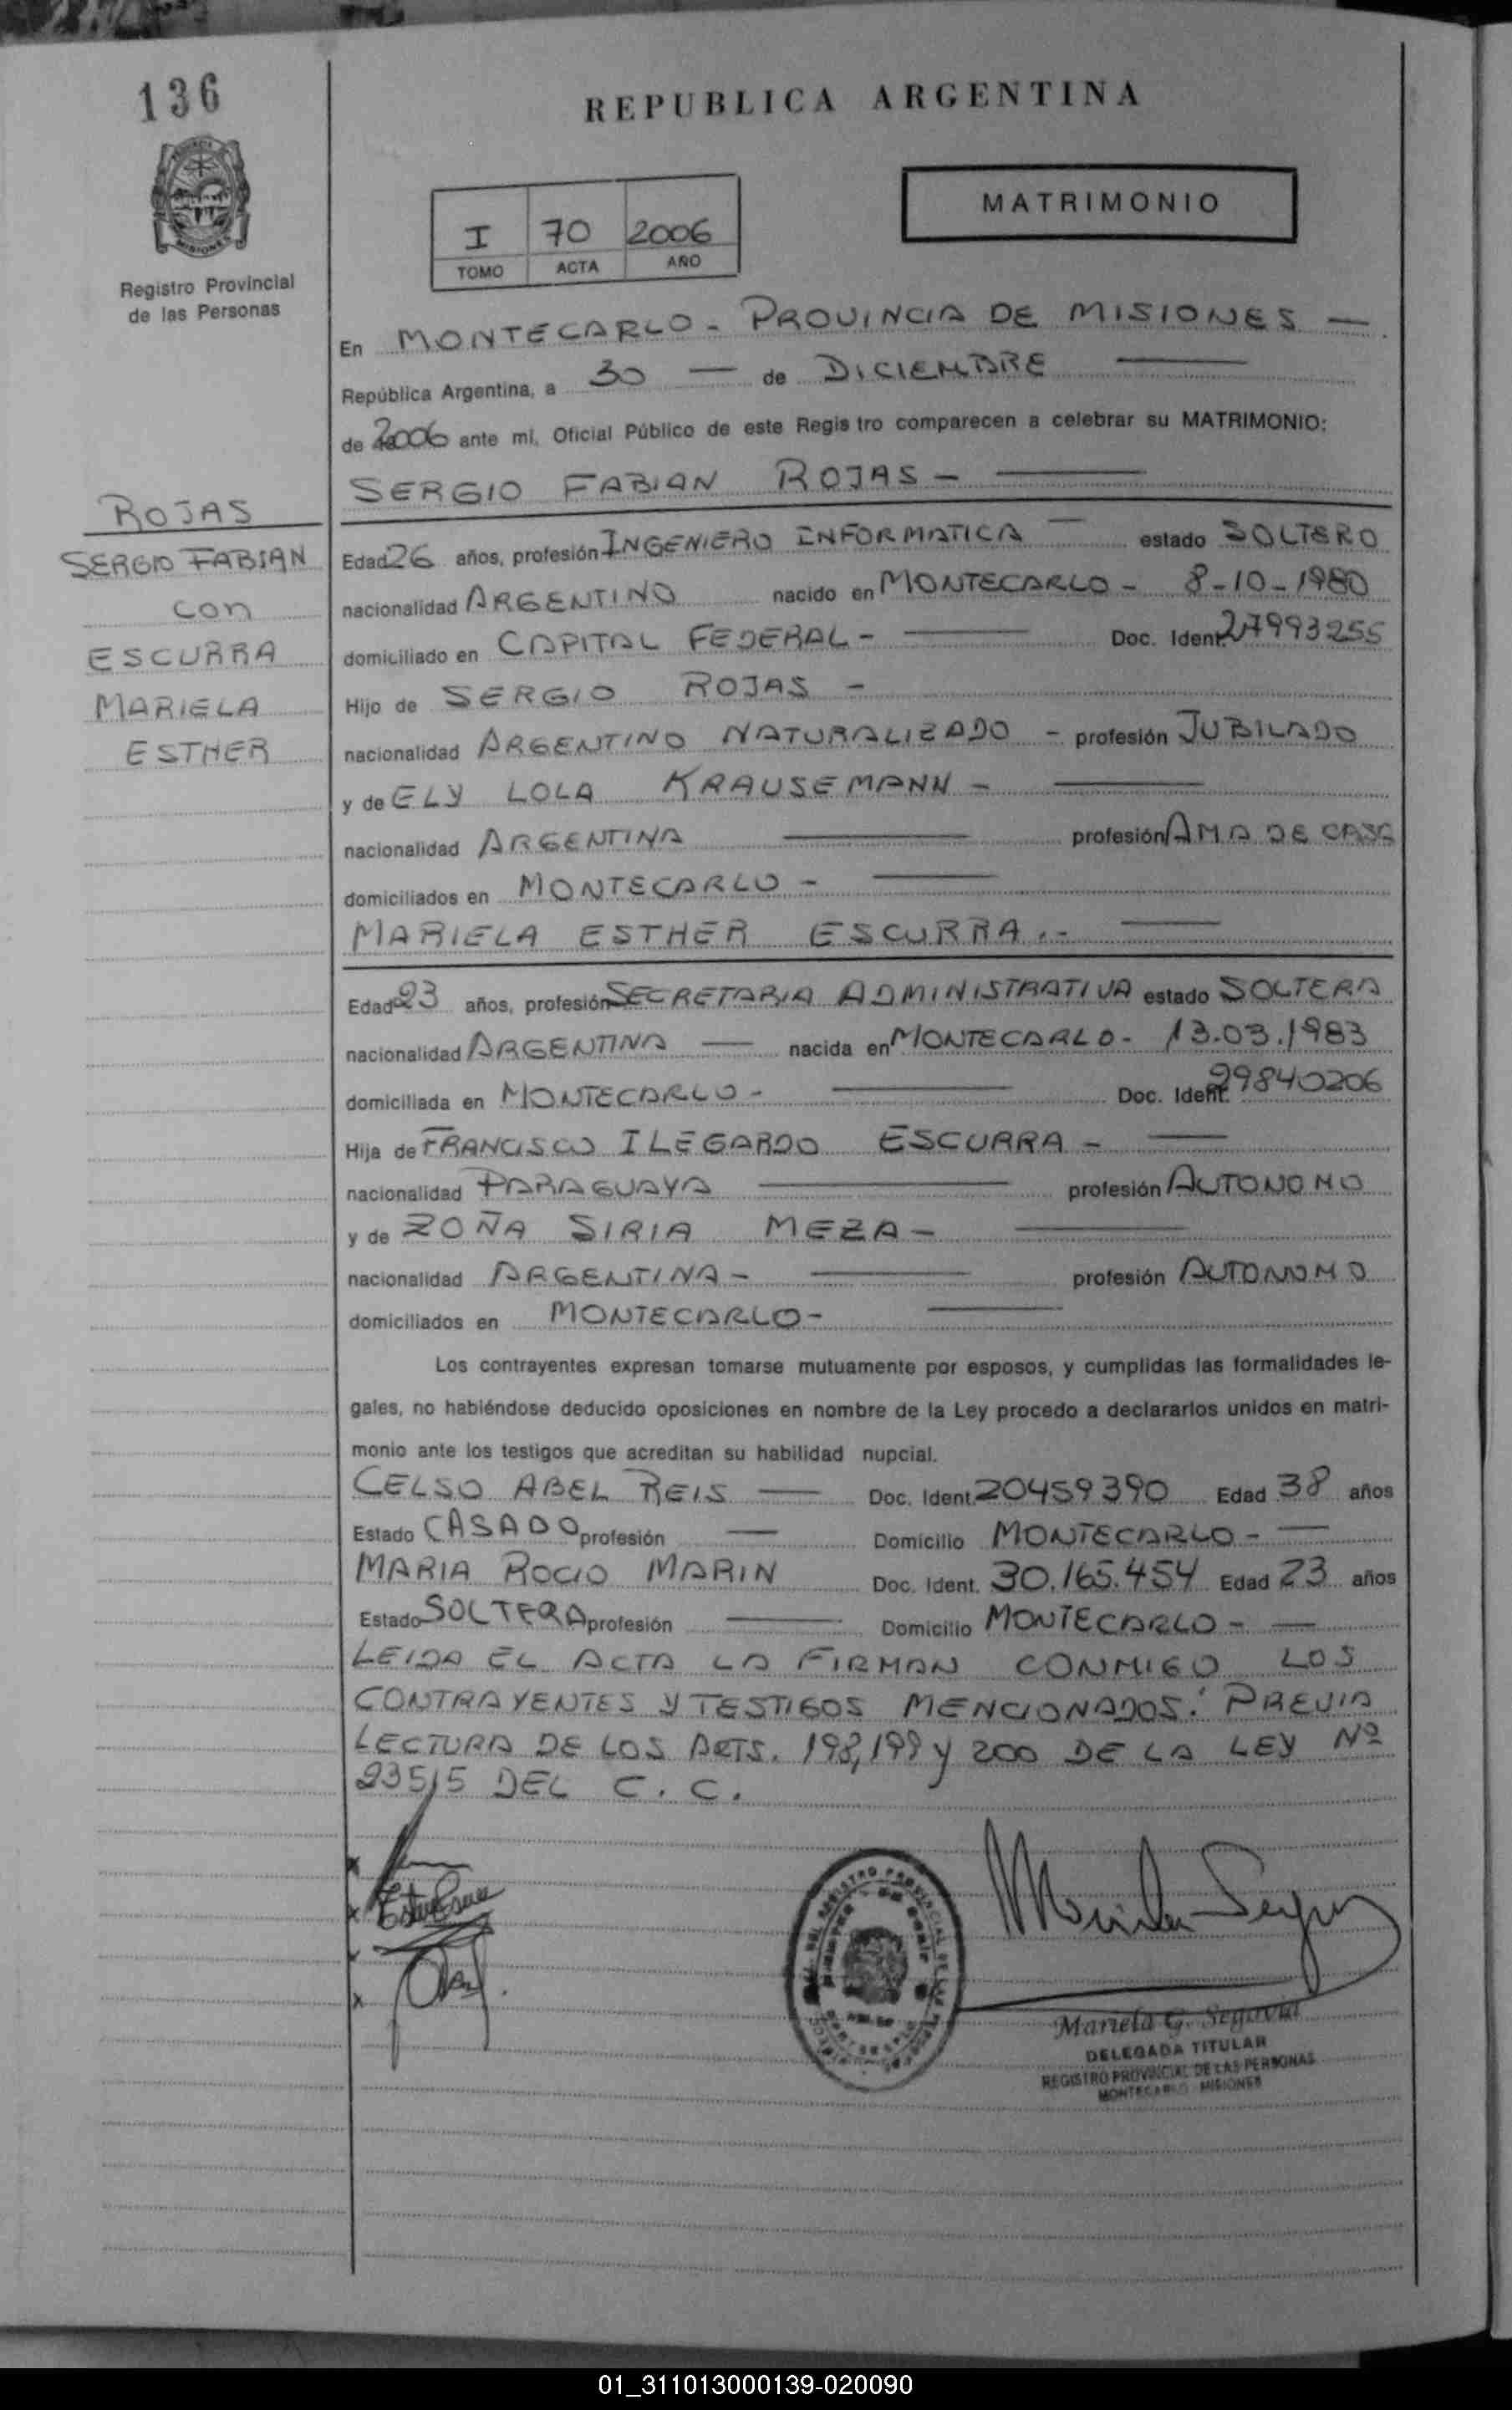 136
REPUBLICA ARGENTINA
MATRIMONIO
I 70 2006
TOMO ACTA AÑO
Registro Provincial
de las Personas
En MONTECARLO - PROVINCIA DE MISIONES —
República Argentina, a 30 — de DICIEMBRE —
de 2006 ante mi, Oficial Público de este Registro comparecen a celebrar su MATRIMONIO:
SERGIO FABIAN ROJAS - —
ROJAS
SERGIO FABIAN
con
ESCURRA
MARIELA
ESTHER
Edad 26 años, profesión INGENIERO INFORMATICA — estado SOLTERO
nacionalidad ARGENTINO nacido en MONTECARLO - 8-10-1980
domiciliado en CAPITAL FEDERAL - — Doc. Ident. 27993255
Hijo de SERGIO ROJAS -
nacionalidad ARGENTINO NATURALIZADO - profesión JUBILADO
y de ELY LOLA KRAUSEMANN - —
nacionalidad ARGENTINA — profesión AMA DE CASA
domiciliados en MONTECARLO - —
MARIELA ESTHER ESCURRA.- —
Edad 23 años, profesión SECRETARIA ADMINISTRATIVA estado SOLTERA
nacionalidad ARGENTINA — nacida en MONTECARLO - 13.03.1983
domiciliada en MONTECARLO - — Doc. Ident. 29840206
Hija de FRANCISCO ILEGARDO ESCURRA - —
nacionalidad PARAGUAYA — profesión AUTONOMO
y de ZOÑA SIRIA MEZA - —
nacionalidad ARGENTINA - — profesión AUTONOMO
domiciliados en MONTECARLO - —
Los contrayentes expresan tomarse mutuamente por esposos, y cumplidas las formalidades le-
gales, no habiéndose deducido oposiciones en nombre de la Ley procedo a declararlos unidos en matri-
monio ante los testigos que acreditan su habilidad nupcial.
CELSO ABEL REIS — Doc. Ident. 20459390 Edad 38 años
Estado CASADO profesión — Domicilio MONTECARLO - —
MARIA ROCIO MARIN Doc. Ident. 30.165.454 Edad 23 años
Estado SOLTERA profesión — Domicilio MONTECARLO - —
LEIDA EL ACTA LA FIRMAN CONMIGO LOS
CONTRAYENTES Y TESTIGOS MENCIONADOS: PREVIA
LECTURA DE LOS ARTS. 198, 199 y 200 DE LA LEY Nº
23515 DEL C. C.
Mariela G. Segovia
DELEGADA TITULAR
REGISTRO PROVINCIAL DE LAS PERSONAS
MONTECARLO MISIONES
01_311013000139-020090